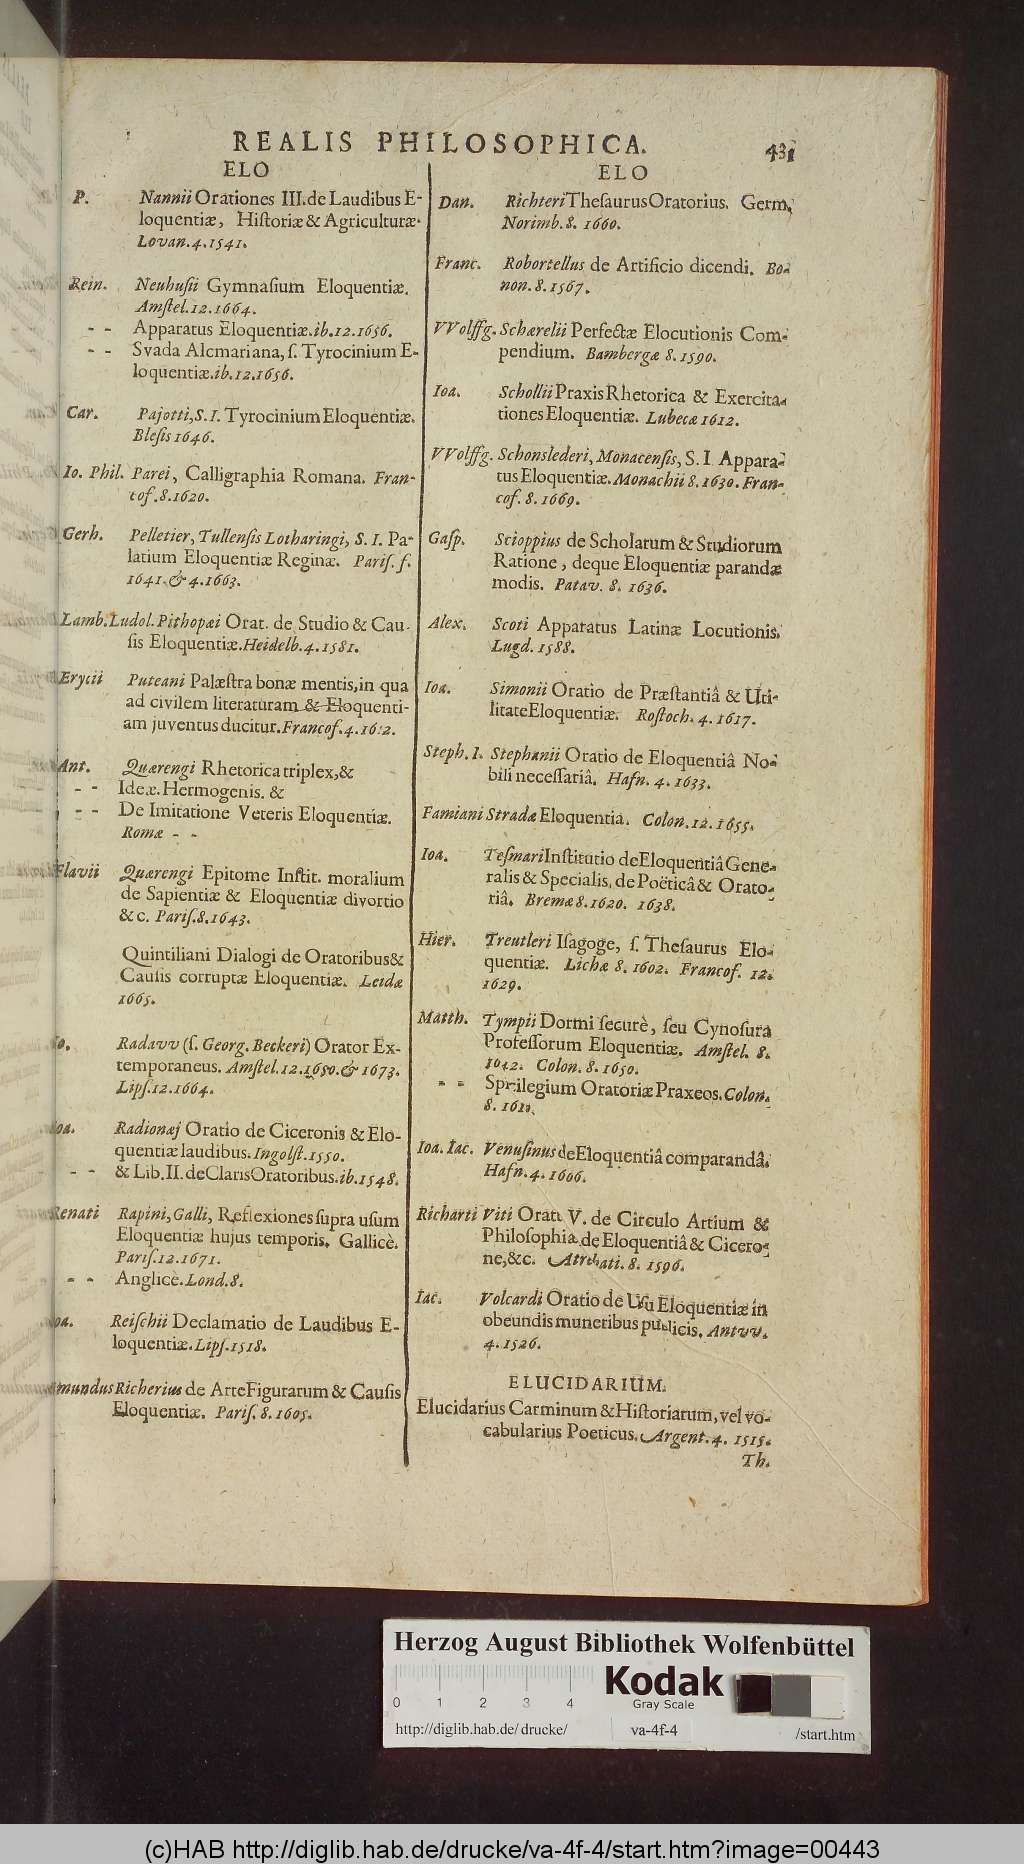 REALIS PHILOSOPHICA. 431
ELO
P. Nannii Orationes III. de Laudibus E-
loquentiæ, Hiſtoriæ & Agriculturæ.
Lovan. 4. 1541.
Rein. Neuhuſii Gymnaſium Eloquentiæ.
Amſtel. 12. 1664.
- - Apparatus Eloquentiæ. ib. 12. 1656.
- - Svada Alcmariana, ſ. Tyrocinium E-
loquentiæ. ib. 12. 1656.
Car. Pajotti, S. I. Tyrocinium Eloquentiæ.
Bleſis 1646.
Io. Phil. Parei, Calligraphia Romana. Fran-
cof. 8. 1620.
Gerh. Pelletier, Tullenſis Lotharingi, S. I. Pa-
latium Eloquentiæ Reginæ. Pariſ. f.
1641. & 4. 1663.
Lamb. Ludol. Pithopæi Orat. de Studio & Cau-
ſis Eloquentiæ. Heidelb. 4. 1581.
Erycii Puteani Palæſtra bonæ mentis, in qua
ad civilem literaturam & Eloquenti-
am juventus ducitur. Francof. 4.
Ant. Quærengi Rhetorica triplex, &
- - Ideæ. Hermogenis. &
- - De Imitatione Veteris Eloquentiæ.
Romæ - -
Flavii Quærengi Epitome Inſtit. moralium
de Sapientiæ & Eloquentiæ divortio
&c. Pariſ. 8. 1643.
Quintiliani Dialogi de Oratoribus &
Cauſis corruptæ Eloquentiæ. Leidæ
1665.
Io. Radavv (ſ. Georg. Beckeri) Orator Ex-
temporaneus. Amſtel. 12. 1650. & 1673.
Lipſ. 12. 1664.
Ioa. Radionæj Oratio de Ciceronis & Elo-
quentiæ laudibus. Ingolſt. 1550.
- - & Lib. II. de Claris Oratoribus. ib. 1548.
Renati Rapini, Galli, Reflexiones ſupra uſum
Eloquentiæ hujus temporis. Gallicè.
Pariſ. 12. 1671.
- - Anglicè. Lond. 8.
Ioa. Reiſchii Declamatio de Laudibus E-
loquentiæ. Lipſ. 1518.
mundus Richerius de Arte Figurarum & Cauſis
Eloquentiæ. Pariſ. 8. 1605.
ELO
Dan. Richteri Theſaurus Oratorius. Germ.
Norimb. 8. 1660.
Franc. Robortellus de Artificio dicendi. Bo-
non. 8. 1567.
VVolffg. Schærelii Perfectæ Elocutionis Com-
pendium. Bambergæ 8. 1590.
Ioa. Schollii Praxis Rhetorica & Exercita-
tiones Eloquentiæ. Lubecæ 1612.
VVolffg. Schonslederi, Monacenſis, S. I Appara-
tus Eloquentiæ. Monachii 8. 1630. Fran-
cof. 8. 1669.
Gaſp. Scioppius de Scholarum & Studiorum
Ratione, deque Eloquentiæ parandæ
modis. Patav. 8. 1636.
Alex. Scoti Apparatus Latinæ Locutionis.
Lugd. 1588.
Ioa. Simonii Oratio de Præſtantiâ & Uti-
litate Eloquentiæ. Roſtoch. 4. 1617.
Steph. I. Stephanii Oratio de Eloquentiâ No-
bili neceſſariâ. Hafn. 4. 1633.
Famiani Stradæ Eloquentia. Colon. 12. 1655.
Ioa. Teſmari Inſtitutio de Eloquentiâ Gene-
ralis & Specialis, de Poëticâ & Orato-
riâ. Bremæ 8. 1620. 1638.
Hier. Treutleri Iſagoge, ſ. Theſaurus Elo-
quentiæ. Lichæ 8. 1602. Francof. 12.
1629.
Matth. Tympii Dormi ſecurè, ſeu Cynoſura
Profeſſorum Eloquentiæ. Amſtel. 8.
1642. Colon. 8. 1650.
- - Spicilegium Oratoriæ Praxeos. Colon.
8.
Ioa. Iac. Venuſinus de Eloquentiâ comparandâ.
Hafn. 4. 1606.
Richarti Viti Orat. V. de Circulo Artium &
Philoſophia, de Eloquentiâ & Cicero-
ne, &c. Atrebati. 8. 1596.
Iac. Volcardi Oratio de Uſu Eloquentiæ in
obeundis muneribus publicis. Antvv.
4. 1526.
ELUCIDARIUM.
Elucidarius Carminum & Hiſtoriarum, vel vo-
cabularius Poeticus. Argent. 4. 1515.
Th.
Herzog August Bibliothek Wolfenbüttel
Kodak
Gray Scale
0 1 2 3 4
http://diglib.hab.de/drucke/ va-4f-4 /start.htm
(c)HAB http://diglib.hab.de/drucke/va-4f-4/start.htm?image=00443